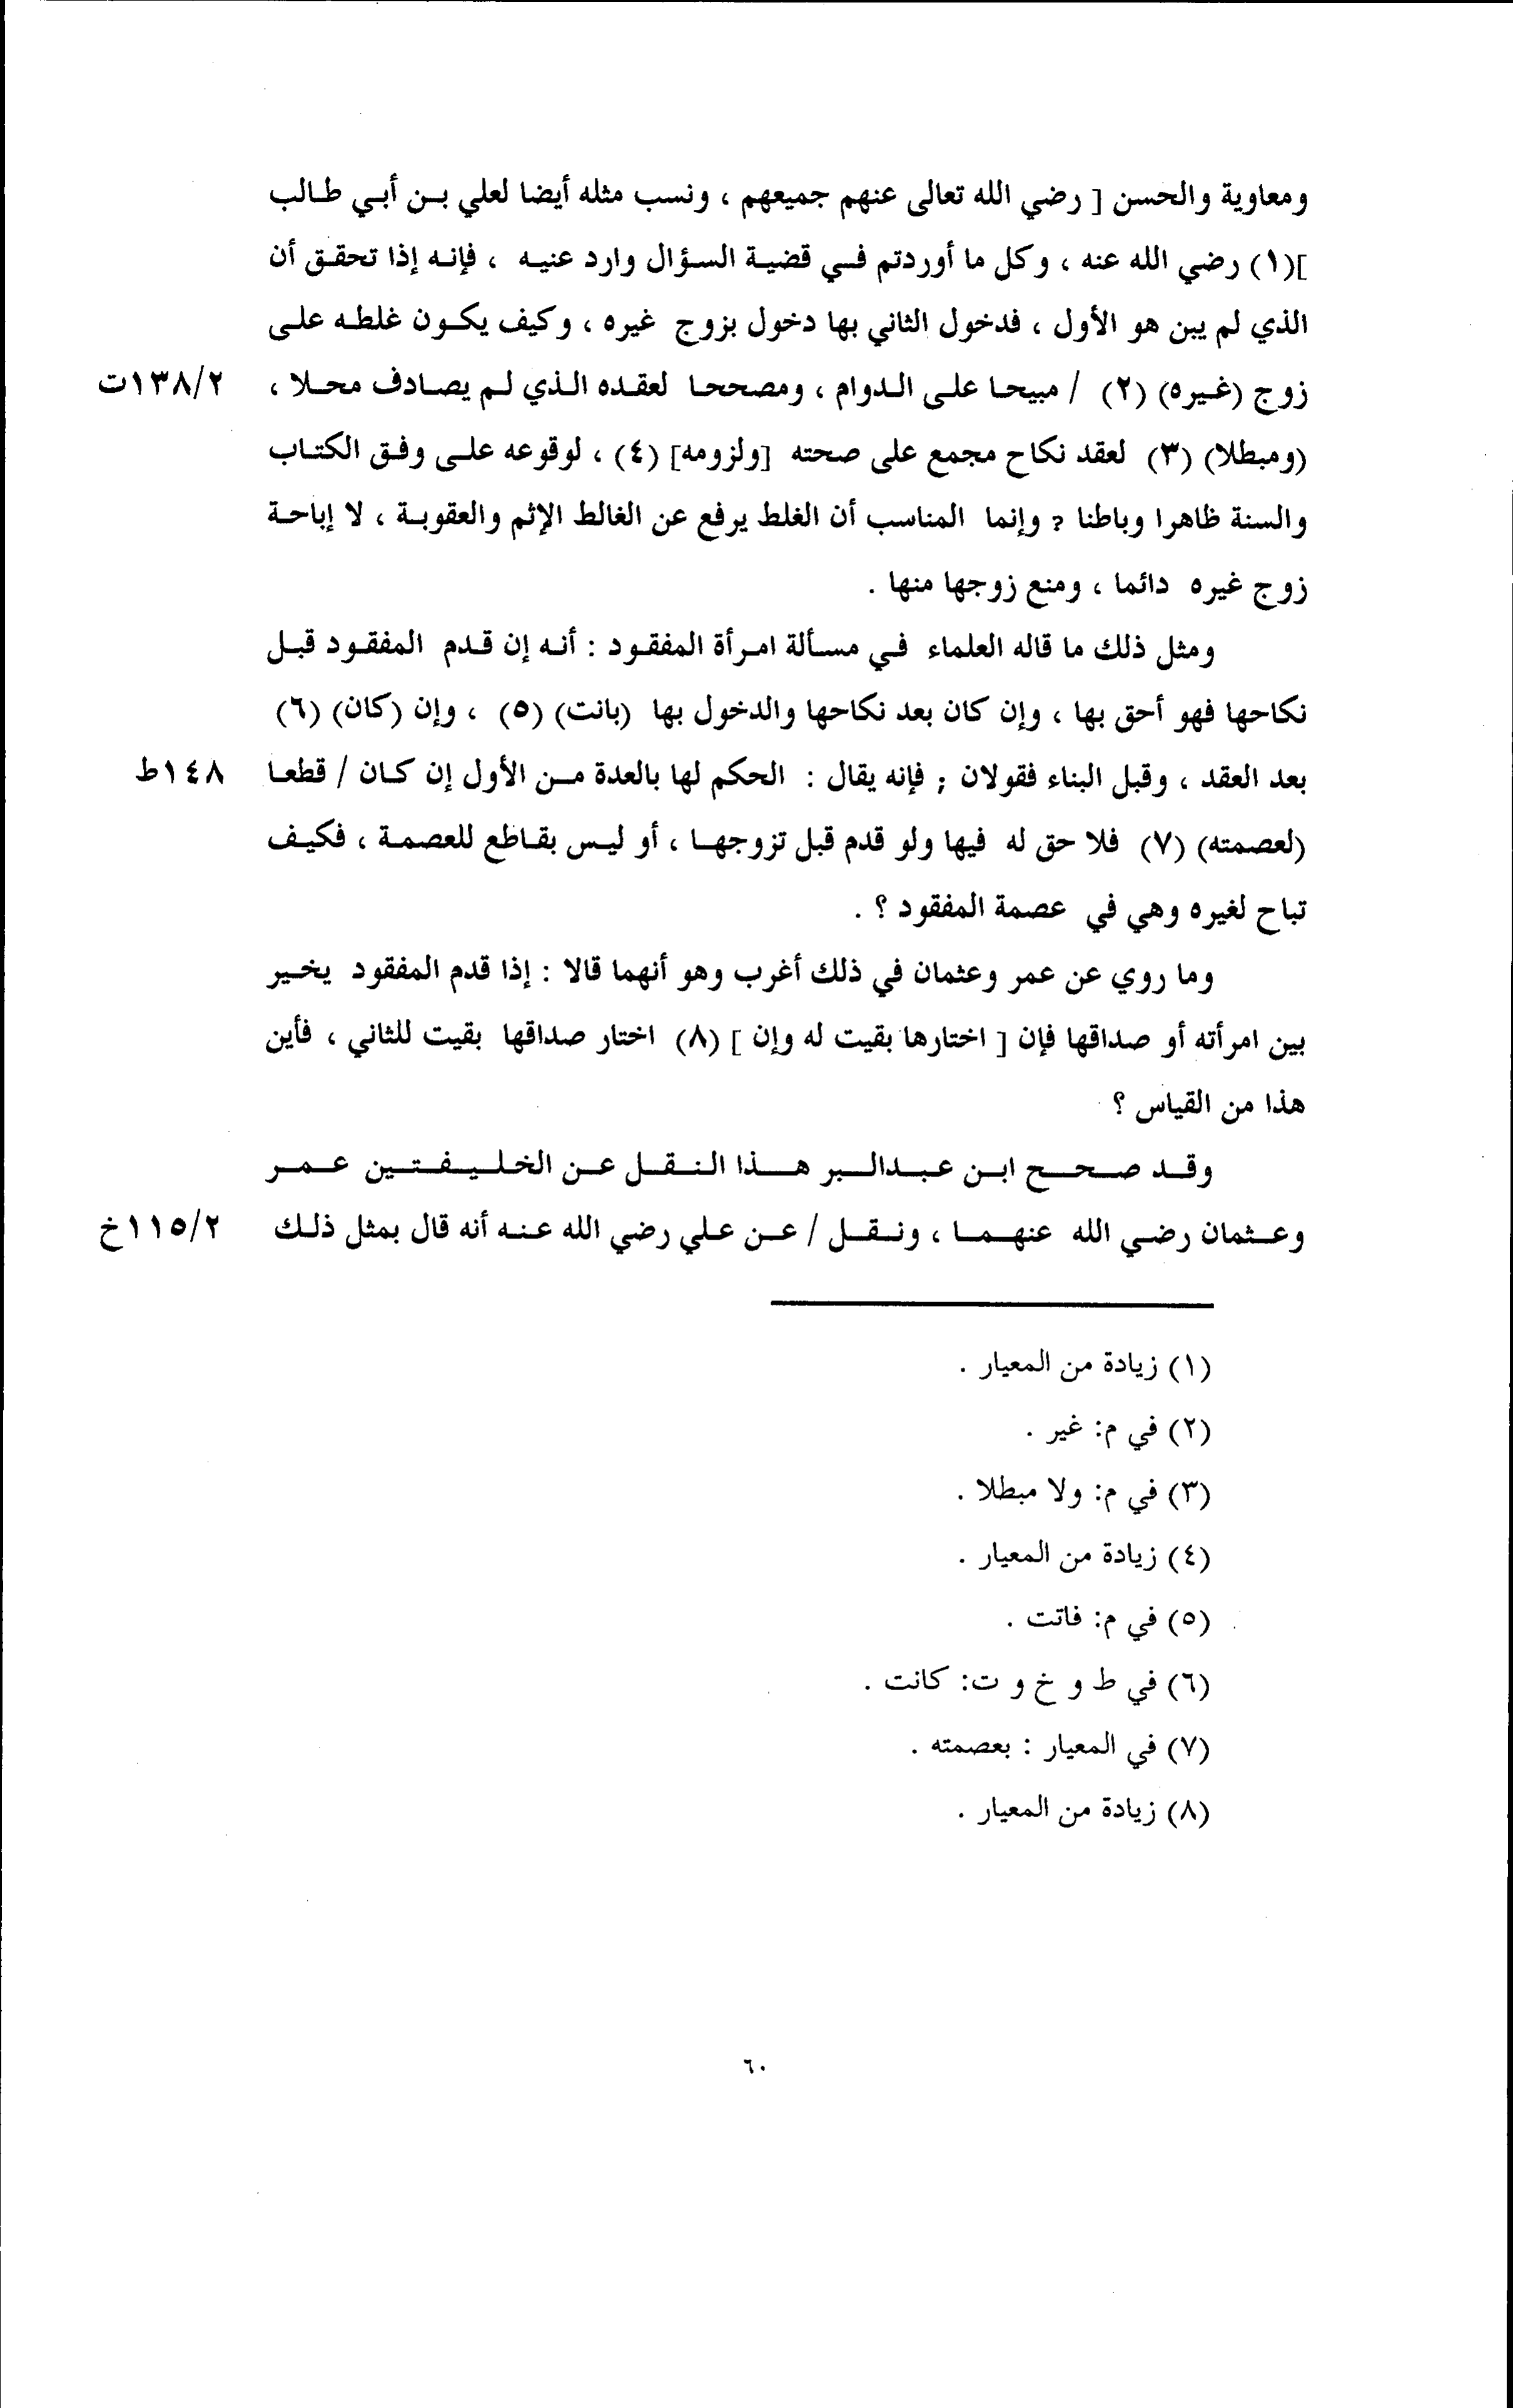 ومعاوية والحسن [ رضي الله تعالى عنهم جميعهم ، ونسب مثله أيضا لعلي بن أبي طالب
](١) رضي الله عنه ، وكل ما أوردتم في قضية السؤال وارد عنيه ، فإنه إذا تحقق أن
الذي لم يبن هو الأول ، فدخول الثاني بها دخول بزوج غيره ، وكيف يكون غلطه على
زوج (غيره) (٢) / مبيحا على الدوام ، ومصححا لعقده الذي لم يصادف محلا ، ١٣٨/٢ت
(ومبطلا) (٣) لعقد نكاح مجمع على صحته [ولزومه] (٤) ، لوقوعه على وفق الكتاب
والسنة ظاهرا وباطنا ? وإنما المناسب أن الغلط يرفع عن الغالط الإثم والعقوبة ، لا إباحة
زوج غيره دائما ، ومنع زوجها منها .
ومثل ذلك ما قاله العلماء في مسألة امرأة المفقود : أنه إن قدم المفقود قبل
نكاحها فهو أحق بها ، وإن كان بعد نكاحها والدخول بها (بانت) (٥) ، وإن (كان) (٦)
بعد العقد ، وقبل البناء فقولان ; فإنه يقال : الحكم لها بالعدة من الأول إن كان / قطعا ١٤٨ط
(لعصمته) (٧) فلا حق له فيها ولو قدم قبل تزوجها ، أو ليس بقاطع للعصمة ، فكيف
تباح لغيره وهي في عصمة المفقود ؟ .
وما روي عن عمر وعثمان في ذلك أغرب وهو أنهما قالا : إذا قدم المفقود يخير
بين امرأته أو صداقها فإن [ اختارها بقيت له وإن ] (٨) اختار صداقها بقيت للثاني ، فأين
هذا من القياس ؟
وقد صحح ابن عبدالبر هذا النقل عن الخليفتين عمر
وعثمان رضي الله عنهما ، ونقل / عن علي رضي الله عنه أنه قال بمثل ذلك ١١٥/٢خ
(١) زيادة من المعيار .
(٢) في م: غير .
(٣) في م: ولا مبطلا .
(٤) زيادة من المعيار .
(٥) في م: فاتت .
(٦) في ط و خ و ت: كانت .
(٧) في المعيار : بعصمته .
(٨) زيادة من المعيار .
٦٠